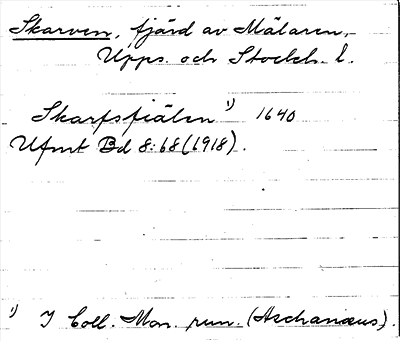 Skarven, fjärd av Mälaren,
Upps. och Stockh. l.
Skarfsfiälen ¹) 1640
Ufmt Bd 8:68 (1918).
¹) I Coll. Mon. run. (Aschanæus).